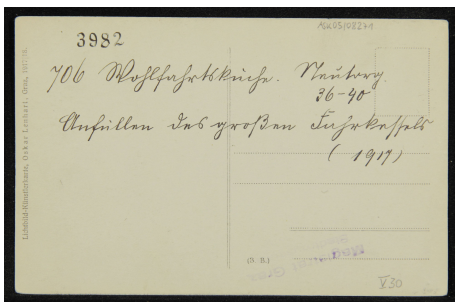 3982
706 Wohlfahrtsküche. Neutorg.
36-40
Anfüllen des großen Fahrkessels
(1917)
Lichtbild-Künstlerkarte, Oskar Lenhart, Graz, 1917/18.
(N. B.)
V.30